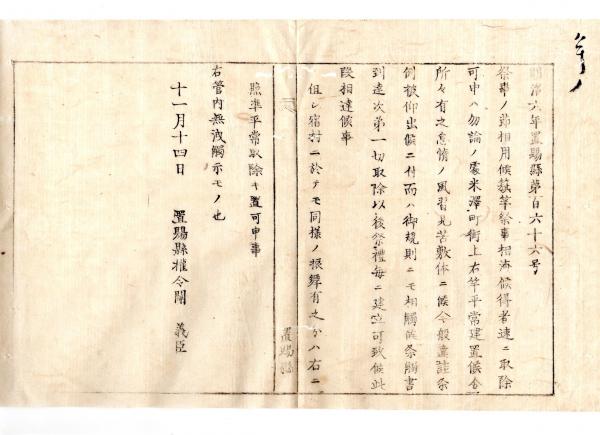 明治六年置賜縣第百六十六号
祭事ノ節相用候旗竿祭事相済候得者速ニ取除
可申ハ勿論ノ處米澤町街上右竿平常建置候会
所々有之怠惰ノ風習見苦敷体ニ候今般違註条
例被仰出候ニ付而ハ御規則ニモ相觸候条觸書
到達次第一切取除以後祭禮毎ニ建方可致候此
段相達候事
但シ宿村ニ於テモ同様ノ振舞有之分ハ右ニ
置賜縣
照準平常取除キ置可申事
右管内無洩觸示モノ也
十一月十四日 置賜縣権令関 義臣